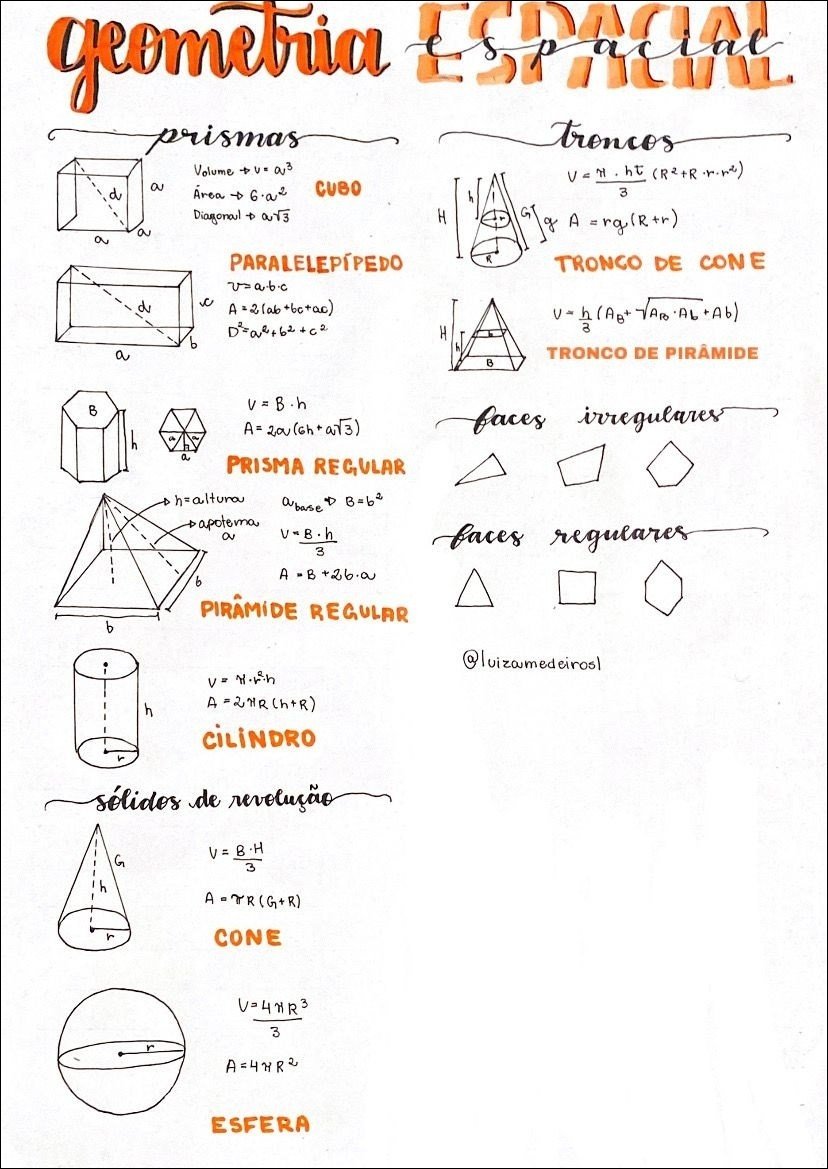 geometria ESPACIAL
espacial
prismas
d
a
a
a
Volume → V = a³
Área → 6·a²
Diagonal → a√3
CUBO
PARALELEPÍPEDO
d
c
b
a
V = a·b·c
A = 2(ab+bc+ac)
D² = a²+b²+c²
B
h
a
a
h
a
V = B·h
A = 2a(6h + a√3)
PRISMA REGULAR
h = altura
apotema
a
b
b
a base → B = b²
V = B·h
3
A = B + 2b·a
PIRÂMIDE REGULAR
h
r
V = π·r²·h
A = 2πR(h+R)
CILINDRO
sólidos de revolução
G
h
r
V = B·H
3
A = πR(G+R)
CONE
r
V = 4πR³
3
A = 4πR²
ESFERA
troncos
H
h
r
G
g
R
V = π·ht (R²+R·r·r²)
3
A = rg(R+r)
TRONCO DE CONE
H
h
b
B
V = h (AB + √AB·Ab + Ab)
3
TRONCO DE PIRÂMIDE
faces irregulares
faces regulares
@luizamedeiros1